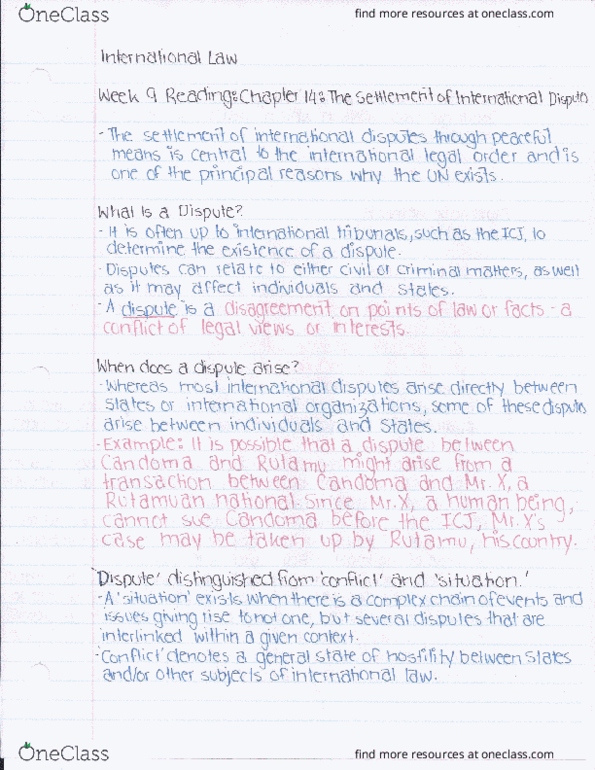 OneClass
find more resources at oneclass.com
International Law
Week 9 Reading: Chapter 14: The Settlement of International Disputes
- The settlement of international disputes through peaceful
means is central to the international legal order and is
one of the principal reasons why the UN exists.
What Is a Dispute?
- It is often up to international tribunals, such as the ICJ, to
determine the existence of a dispute.
- Disputes can relate to either civil or criminal matters, as well
as it may affect individuals and states.
- A dispute is a disagreement on points of law or facts - a
conflict of legal views or interests.
When does a dispute arise?
- Whereas most international disputes arise directly between
States or international organizations, some of these disputes
arise between individuals and States.
- Example: It is possible that a dispute between
Candoma and Rutamu might arise from a
transaction between Candoma and Mr. X, a
Rutamuan national. Since Mr. X, a human being,
cannot sue Candoma before the ICJ, Mr. X's
case may be taken up by Rutamu, his country.
'Dispute' distinguished from 'conflict' and 'situation.'
- A 'situation' exists when there is a complex chain of events and
issues giving rise to not one, but several disputes that are
interlinked within a given context.
- 'Conflict' denotes a general state of hostility between States
and/or other subjects of international law.
OneClass
find more resources at oneclass.com